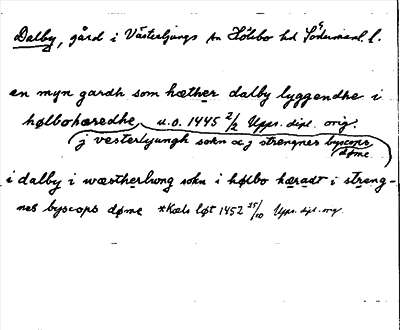 Dalby, gård i Västerljungs sn Hölebo hd Södermanl. l.
en myn gardh som hæther dalby lyggendhe i
hølbohæredhe u.o. 1445 2/2 Upps. dipl. orig.
j vesterlyungh sokn oc j strengnes byscops
døme
i dalby i wæstherlwng sokn i hølbo hæradt i streng-
nes byscops døme *Kæls løt 1452 25/10 Upps. dipl. orig.